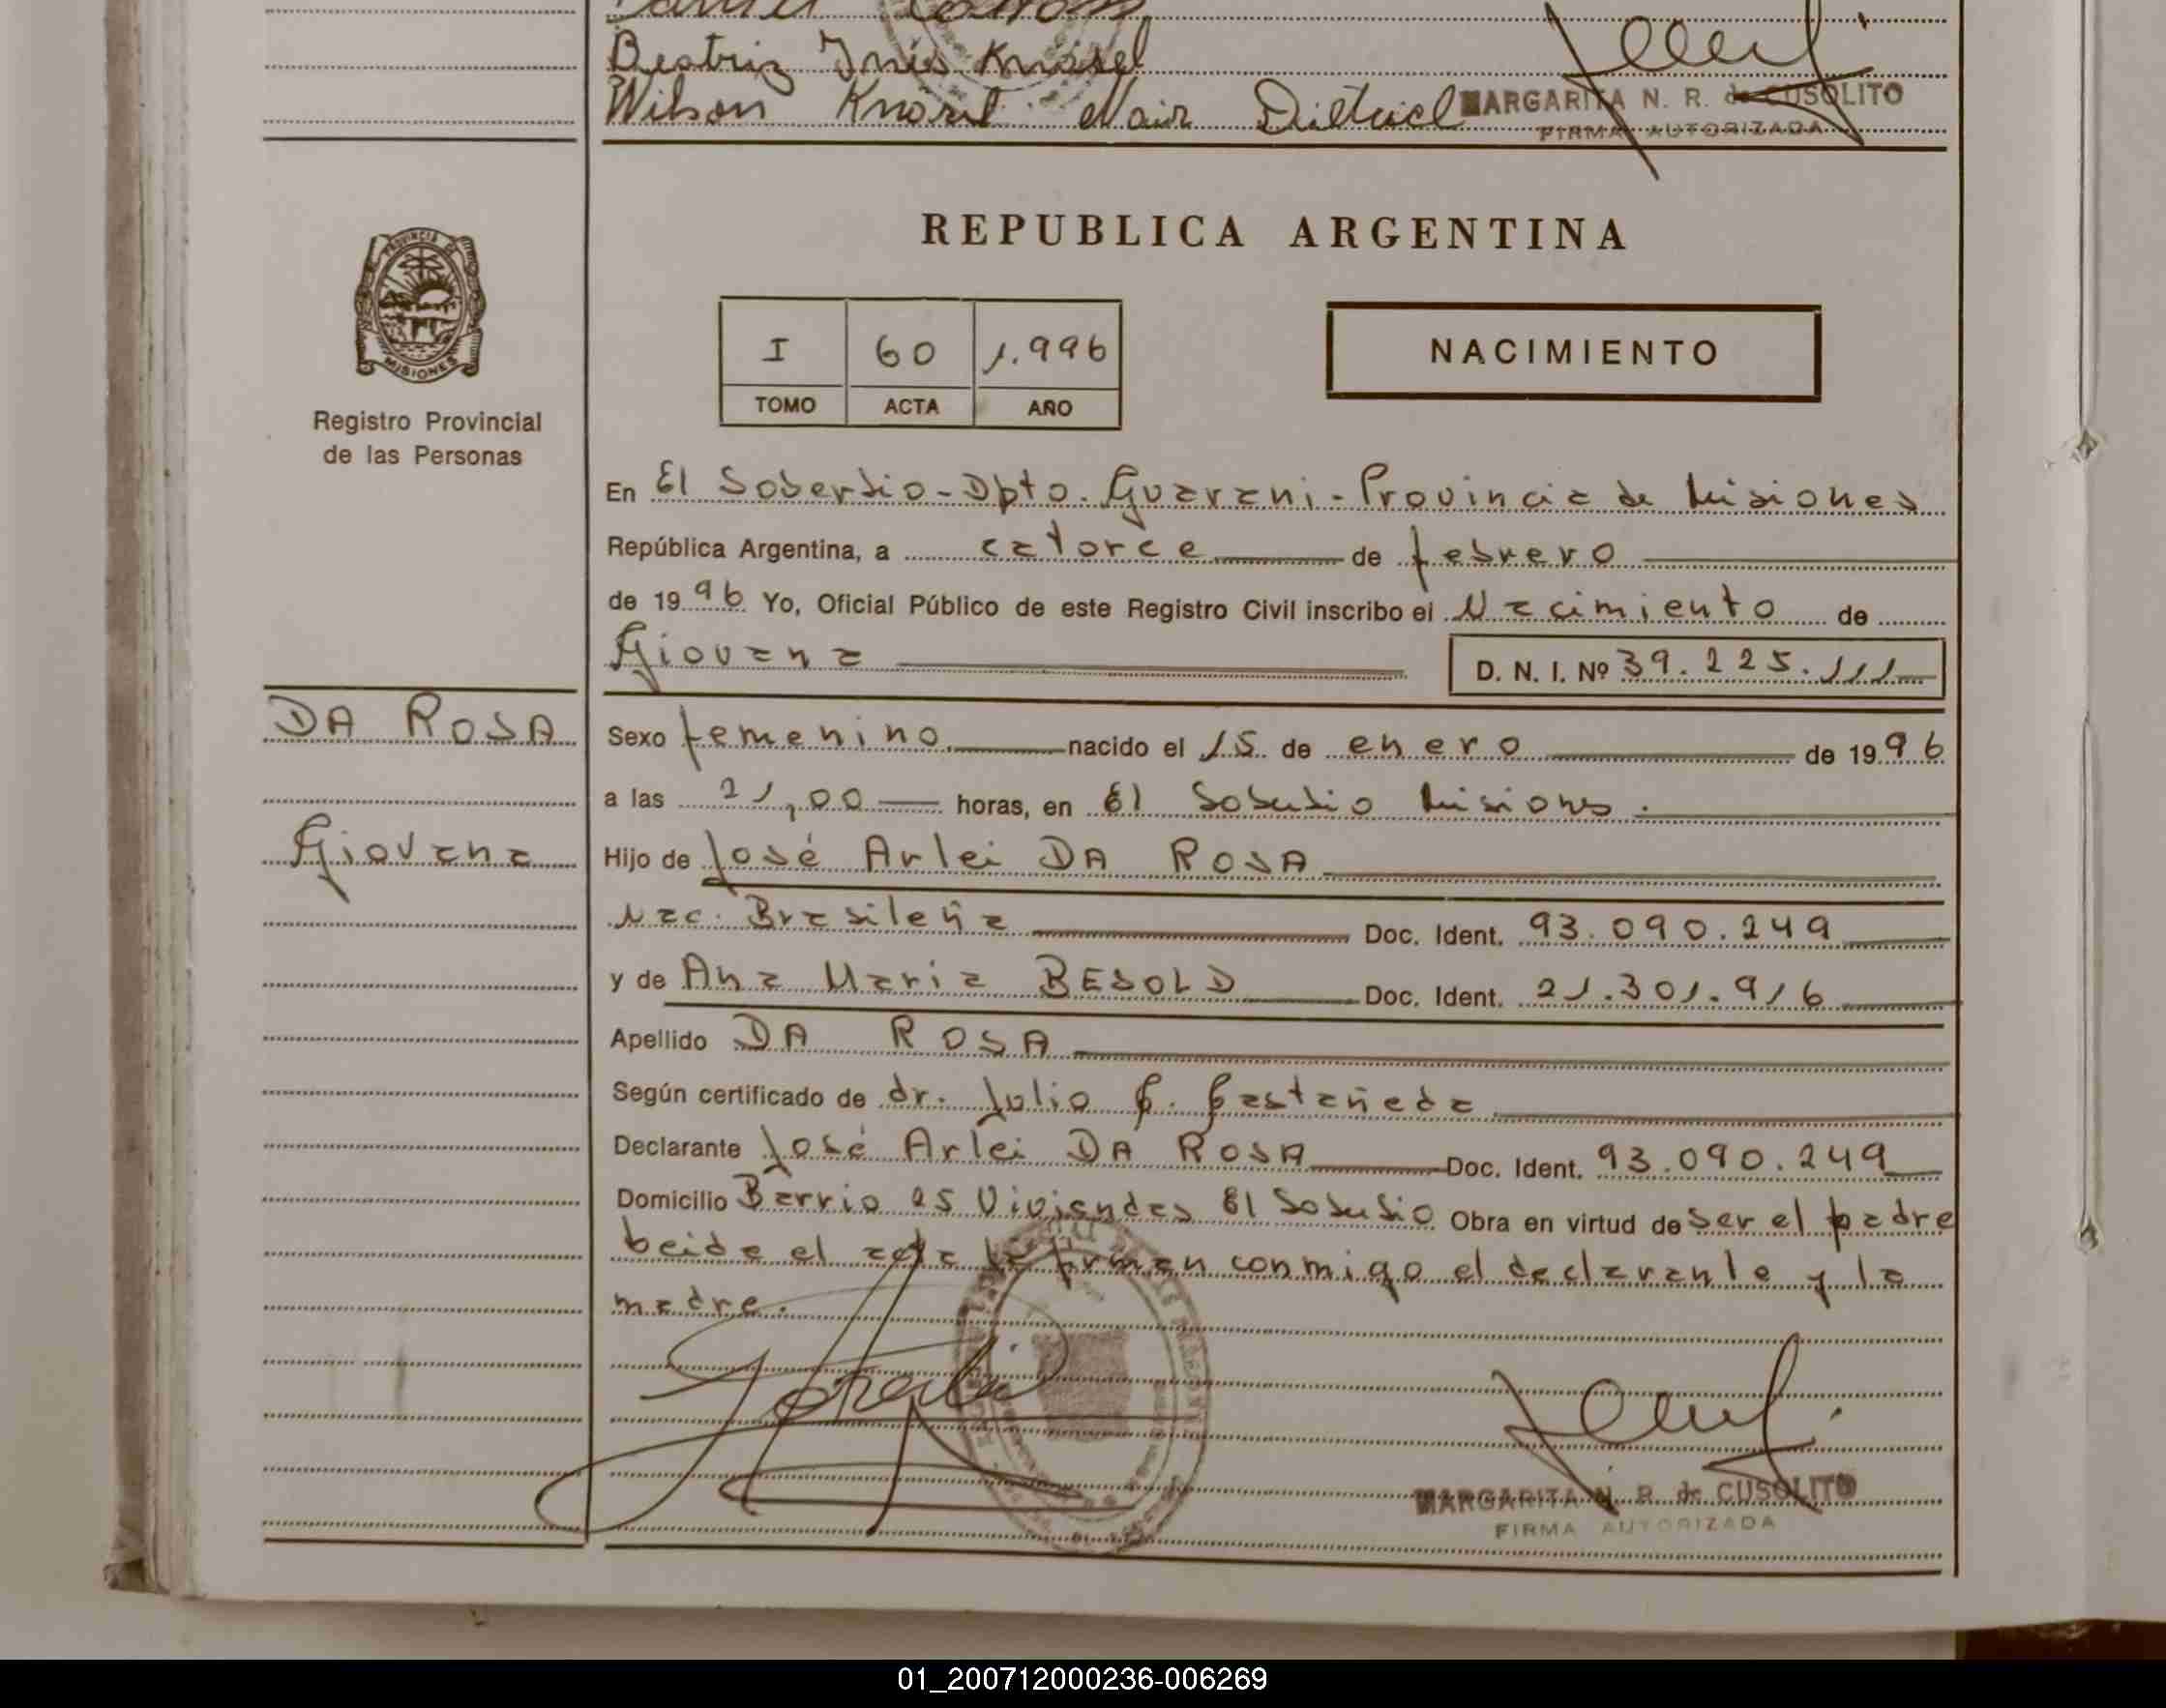 Beatriz Inés Knasel
Wilson Knasel Nair Dietrich
MARGARITA N. R. de CUSOLITO
FIRMA AUTORIZADA
PROVINCIA DE
MISIONES
Registro Provincial
de las Personas
REPUBLICA ARGENTINA
I 60 1.996
TOMO ACTA AÑO
NACIMIENTO
En El Soberbio - Dpto. Guarani - Provincia de Misiones
República Argentina, a catorce de febrero
de 1996 Yo, Oficial Público de este Registro Civil inscribo el Nacimiento de
Giovana D. N. I. Nº 39.225.111
DA ROSA
Giovana
Sexo femenino nacido el 15 de enero de 1996
a las 21,00 horas, en El Soberbio Misiones.
Hijo de José Arlei DA ROSA
Nac. Brasileña Doc. Ident. 93.090.249
y de Ana Maria BESOLD Doc. Ident. 21.301.916
Apellido DA ROSA
Según certificado de dr. Julio C. Castañeda
Declarante José Arlei DA ROSA Doc. Ident. 93.090.249
Domicilio Barrio 25 Viviendas El Soberbio Obra en virtud de ser el padre
Leida el acta la firman conmigo el declarante y la
madre.
MARGARITA N. R. de CUSOLITO
FIRMA AUTORIZADA
01_200712000236-006269